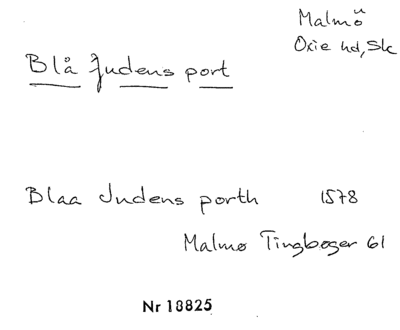 Malmö
Oxie hd, Sk
Blå Judens port
Blaa Judens porth 1578
Malmø Tingbøger 61
Nr 18825